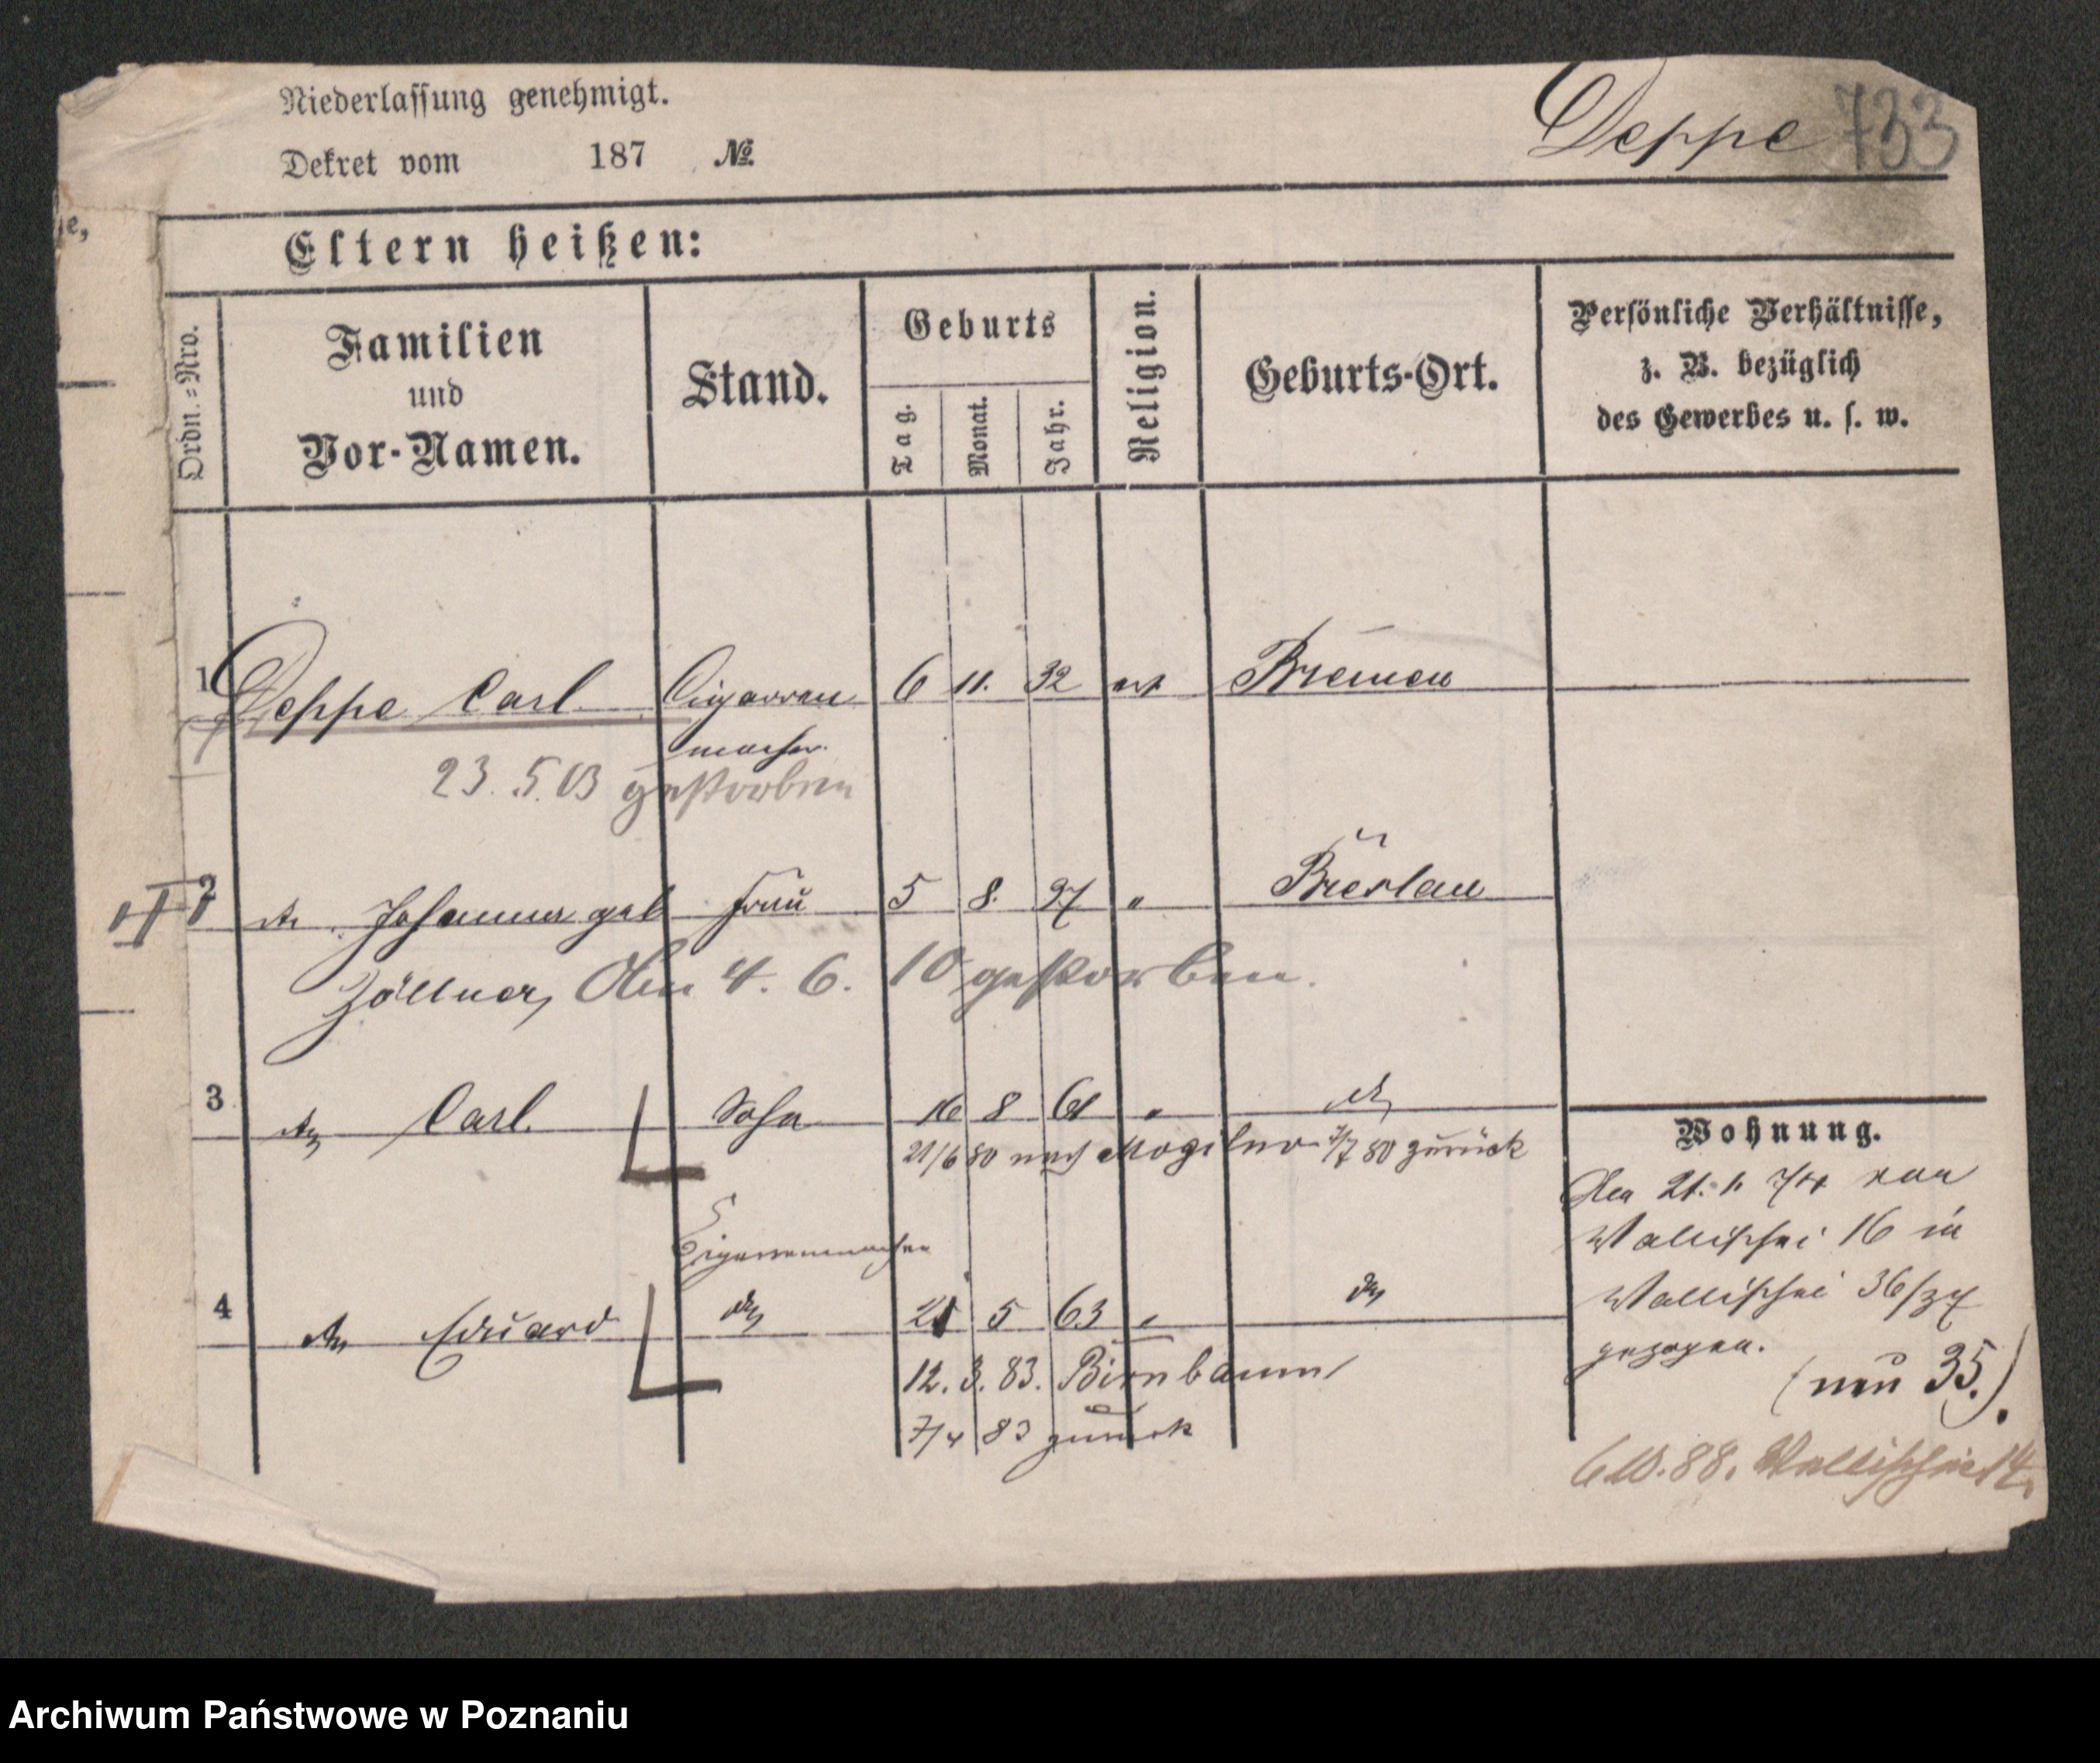 Niederlassung genehmigt.
Dekret vom 187 №
Deppe 733
Eltern heißen:
Ordn.=Nro.
Familien
und
Vor-Namen.
Stand.
Geburts
Tag.
Monat.
Jahr.
Religion.
Geburts-Ort.
Persönliche Verhältnisse,
z. B. bezüglich
des Gewerbes u. s. w.
1 Deppe Carl Cigarren 6 11. 32 Bremen
macher.
23. 5. 03 gestorben
2 Johanna geb Frau 5 8. 37 " Breslau
Zöllner, Am 4. 6. 10 gestorben.
3 Carl. Sohn 16 8 61 "
21/6 80 nach Mogilno 7/7 80 zurück
Cigarrenmacher
4 Eduard 21 5 63 "
12. 3. 83. Birnbaum
7/4 83 zurück
Wohnung.
von
Wallischei 16 in
Wallischei 36/37
gezogen.
(neu 35.)
88. Wallischei 14.
je,
Archiwum Państwowe w Poznaniu